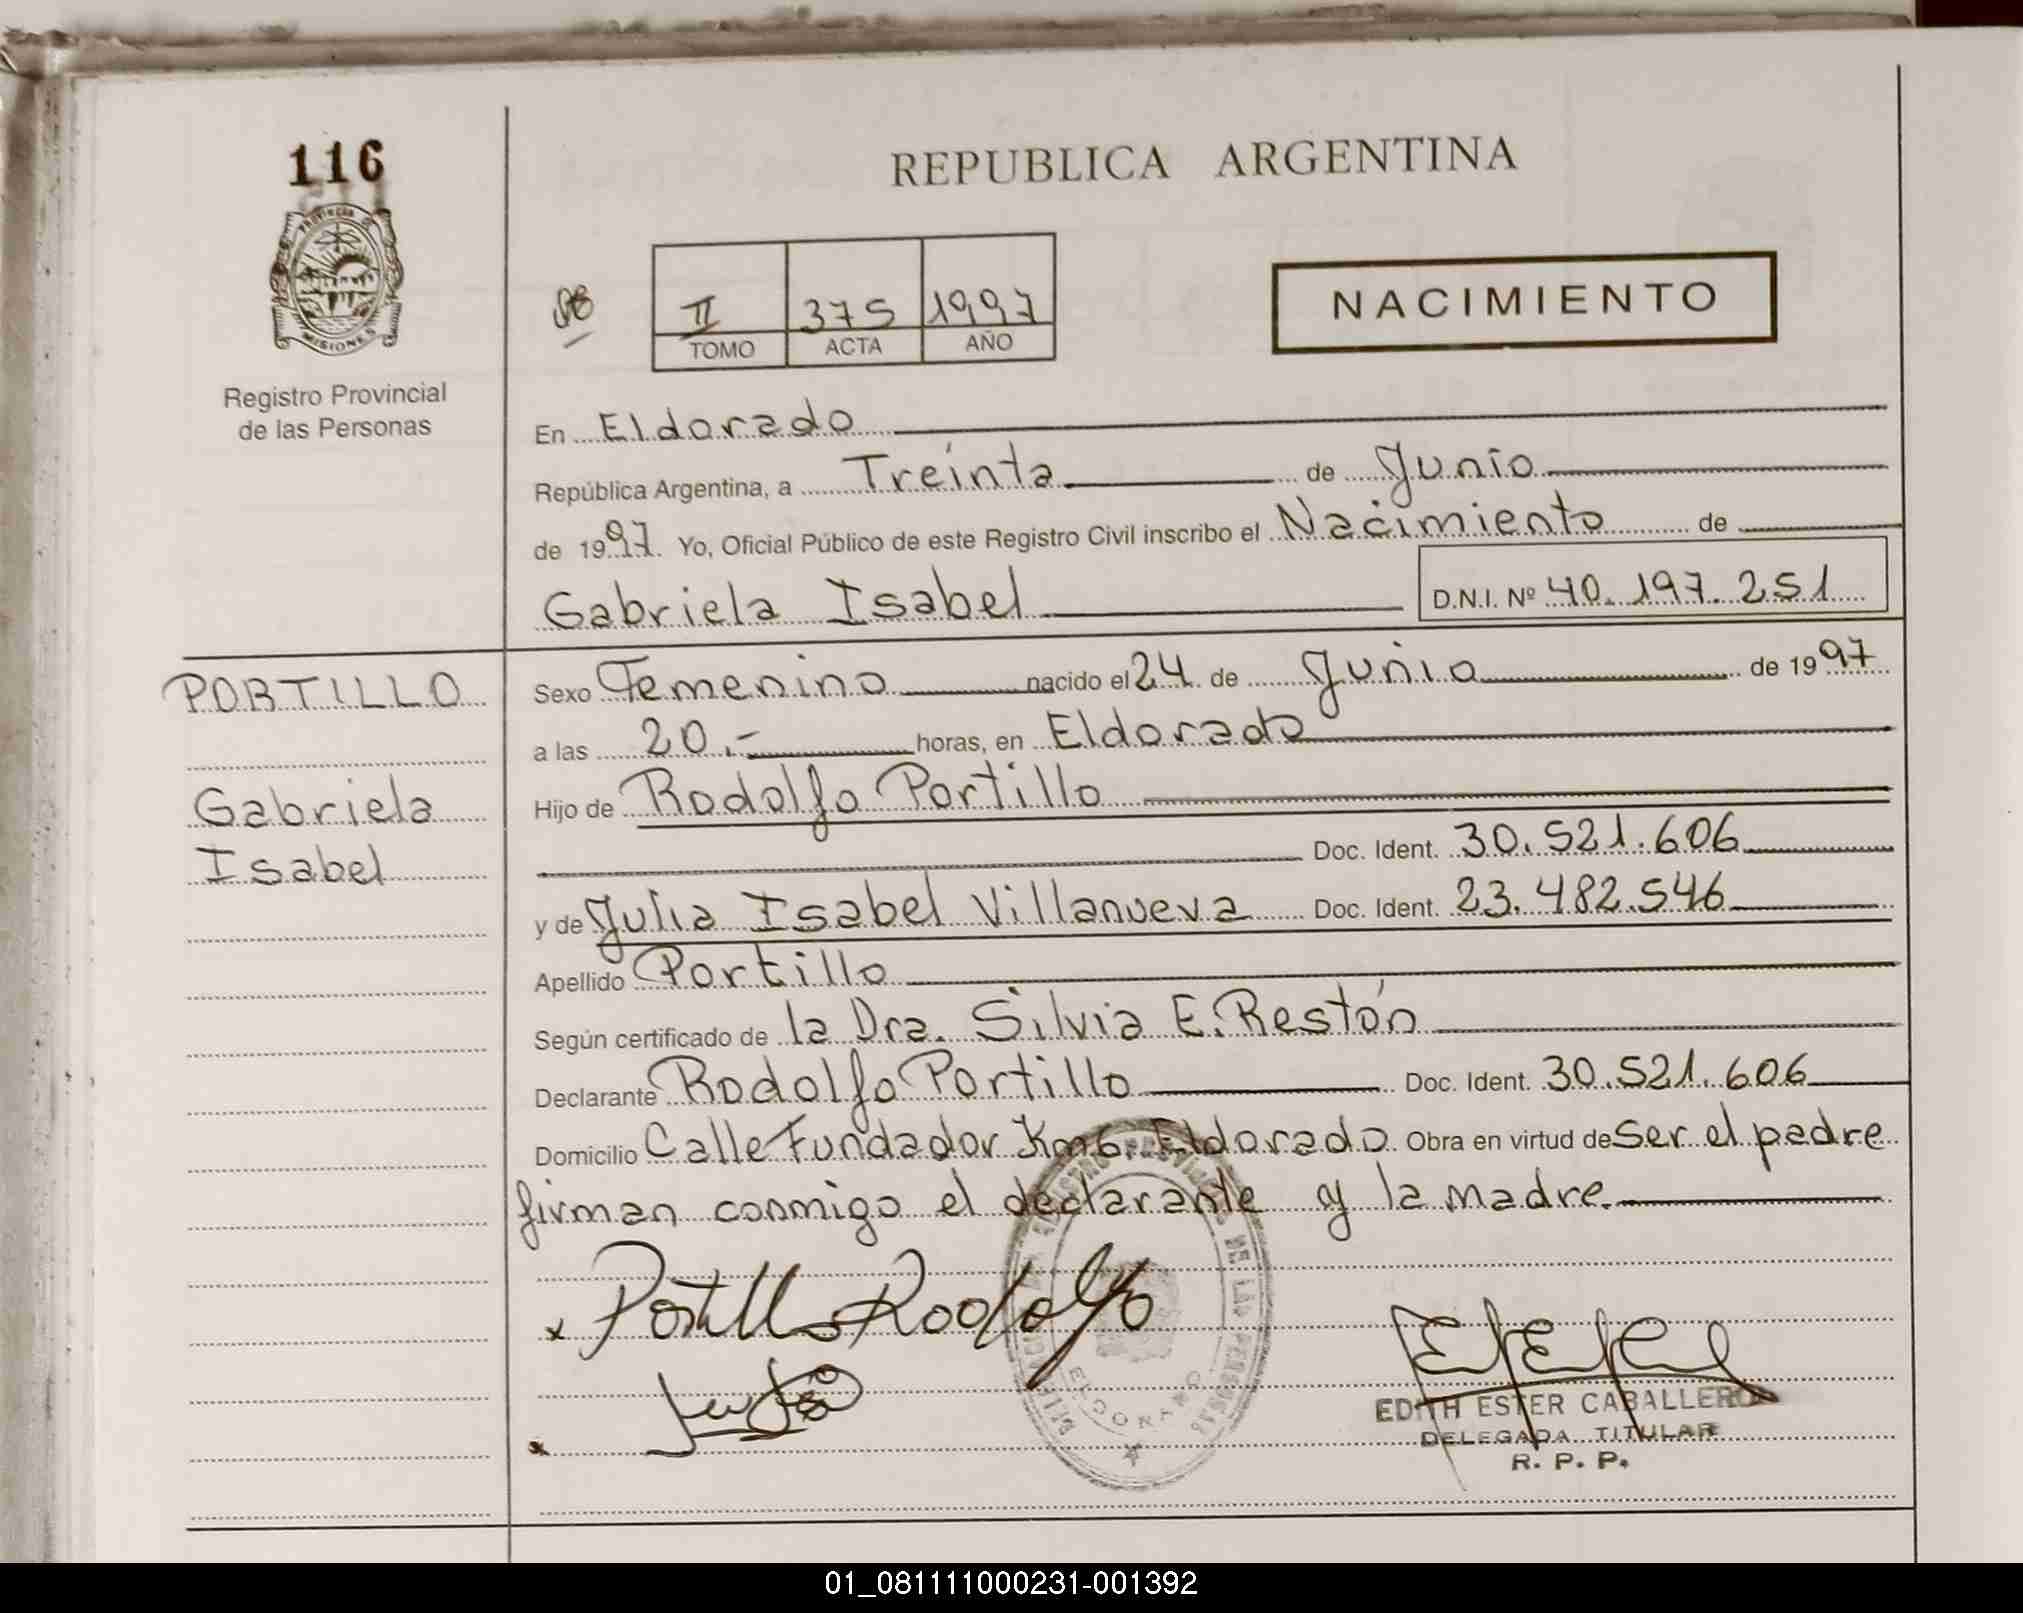 116
PROVINCIA DE
MISIONES
Registro Provincial
de las Personas
REPUBLICA ARGENTINA
II 375 1997
TOMO ACTA AÑO
NACIMIENTO
En Eldorado
República Argentina, a Treinta de Junio
de 1997. Yo, Oficial Público de este Registro Civil inscribo el Nacimiento de
Gabriela Isabel D.N.I. Nº 40.197.251
PORTILLO
Gabriela
Isabel
Sexo Femenino nacido el 24 de Junio de 1997
a las 20.- horas, en Eldorado
Hijo de Rodolfo Portillo
Doc. Ident. 30.521.606
y de Julia Isabel Villanueva Doc. Ident. 23.482.546
Apellido Portillo
Según certificado de la Dra. Silvia E. Restón
Declarante Rodolfo Portillo Doc. Ident. 30.521.606
Domicilio Calle Fundador Km 6. Eldorado Obra en virtud de Ser el padre
firman conmigo el declarante y la madre.
x Portillo Rodolfo
x
DE LAS PERSONAS
ELDORADO
EDITH ESTER CABALLERO
DELEGADA TITULAR
R. P. P.
01_081111000231-001392